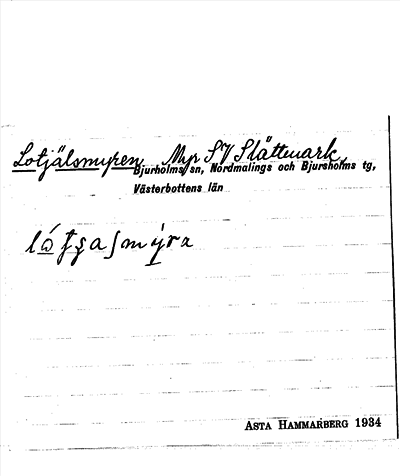 Lotjälsmyren Myr SV Slättmark,
Bjurholms sn, Nordmalings och Bjurholms tg,
Västerbottens län
ASTA HAMMARBERG 1934